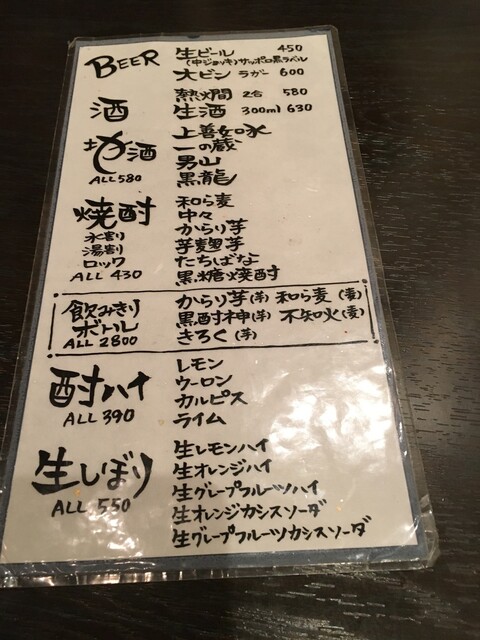 BEER 生ビール 450
(中ジョッキ)サッポロ黒ラベル
大ビン ラガー 600
酒 熱燗 2合 580
生酒 300ml 630
地酒 ALL 580
上善如水
一の蔵
男山
黒龍
焼酎
水割
湯割
ロック
ALL 430
和ら麦
中々
からり芋
芋麹芋
たちばな
黒糖焼酎
飲みきり
ボトル
ALL 2800
からり芋(芋) 和ら麦(麦)
黒酎神(芋) 不知火(麦)
きろく(芋)
酎ハイ
ALL 390
レモン
ウーロン
カルピス
ライム
生しぼり
ALL 550
生レモンハイ
生オレンジハイ
生グレープフルーツハイ
生オレンジカシスソーダ
生グレープフルーツカシスソーダ